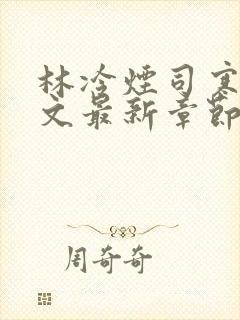 林冷煙司寒
文最新章節
周奇奇